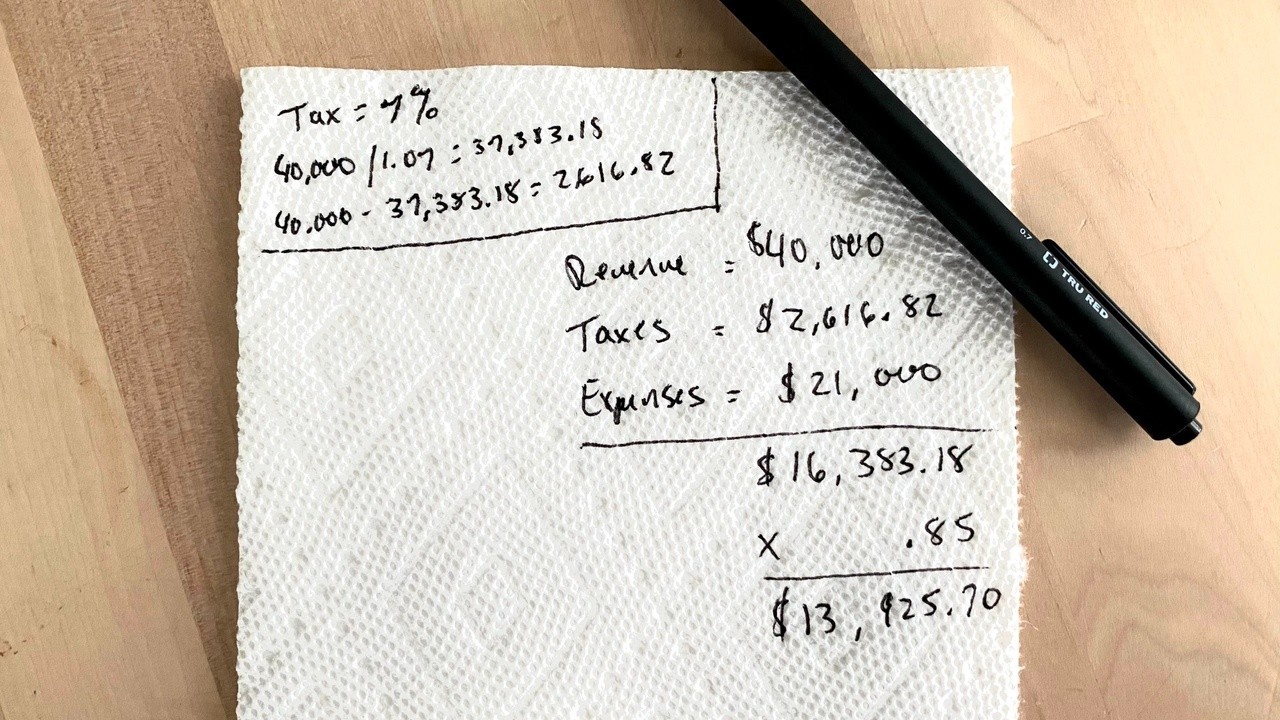 Tax = 7%
40,000 / 1.07 = 37,383.18
40.000 - 37,383.18 = 2,616.82
Revenue = $40,000
Taxes = $2,616.82
Expenses = $21,000
$16,383.18
x .85
$13,925.70
0.7
TRU RED